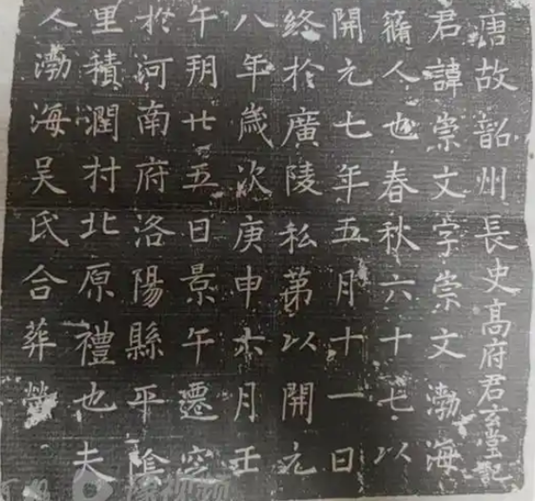 唐故韶州長史高府君玄堂記
君諱崇文字崇文渤海
蓨人也春秋六十七以
開元七年五月十一日
終於廣陵私第以開元
八年歲次庚申六月壬
午朔廿五日景午遷窆
於河南府洛陽縣平陰
里積潤村北原禮也夫
人渤海吴氏合葬